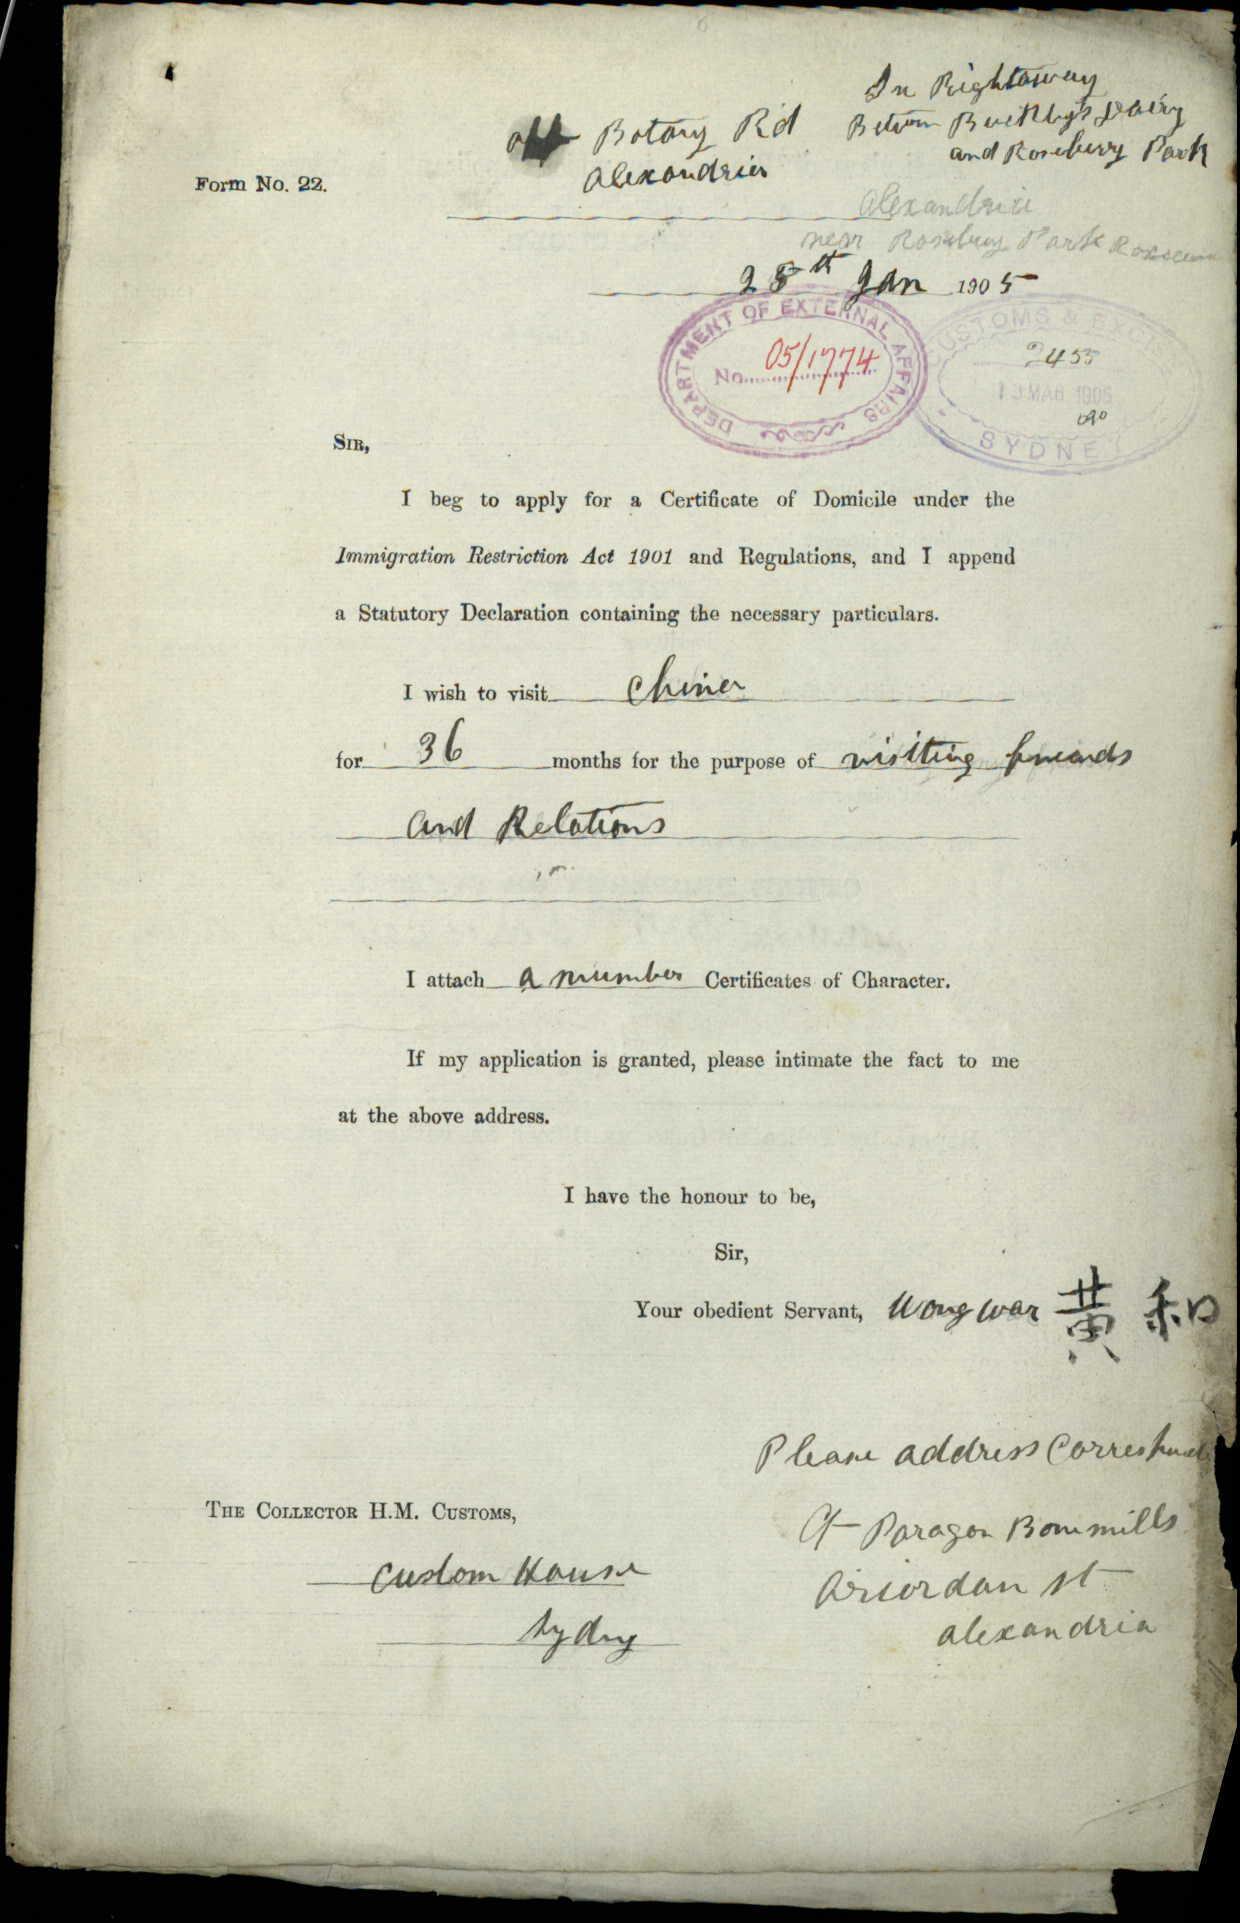 In Rightaway
off Botany Rd Between Buckley's Dairy
Alexandria and Rosebery Park
Form No. 22.
Alexandria
near Rosebery Park
28th Jan 1905
DEPARTMENT OF EXTERNAL AFFAIRS
No. 05/1774
CUSTOMS & EXCISE
2455
13 MAR 1905
SYDNEY
SIR,
I beg to apply for a Certificate of Domicile under the
Immigration Restriction Act 1901 and Regulations, and I append
a Statutory Declaration containing the necessary particulars.
I wish to visit China
for 36 months for the purpose of visiting friends
and Relations
I attach a number Certificates of Character.
If my application is granted, please intimate the fact to me
at the above address.
I have the honour to be,
Sir,
Your obedient Servant, Wong War 黃 和
Please address
THE COLLECTOR H.M. CUSTOMS,
Paragon
Custom House
st
Sydny
Alexandria